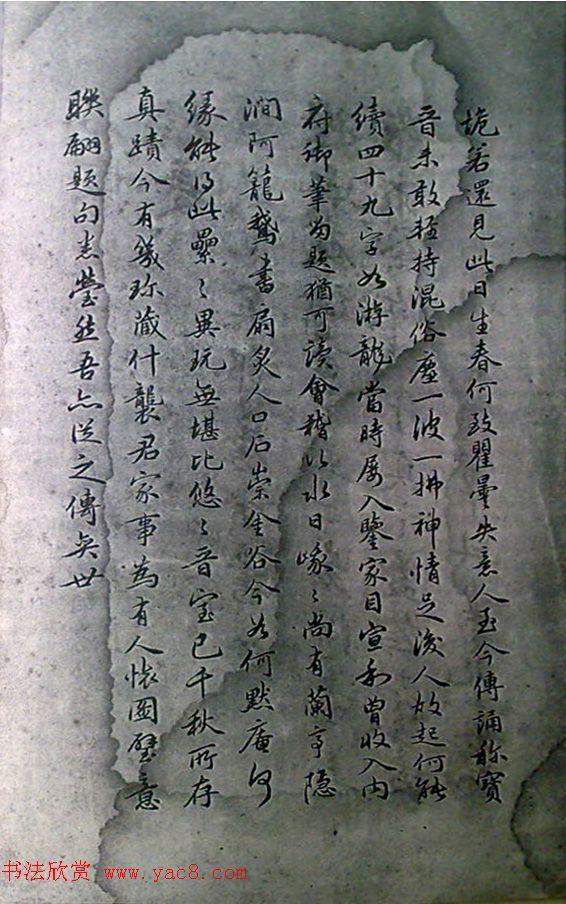 詭若還見此日生春何致瞿曇失意人至今傳誦称寳
晋未敢輕持混俗塵一波一拂神情足後人放起何能
續四十九字如游龍當時屡入鑒家目宣和曽收入内
府御筆為題猶可讀會稽以水日啄〻尚有蘭亭隐
澗阿籠鵞書扇炙人口石崇金谷今如何默庵何
縁能得此纍〻異玩無堪比悠〻晋宝已千秋所存
真蹟今有幾珎藏什襲君家事為有人懐圖璧意
聫翩題句光瑩然吾亦從之傳奕世
书法欣赏 www.yac8.com